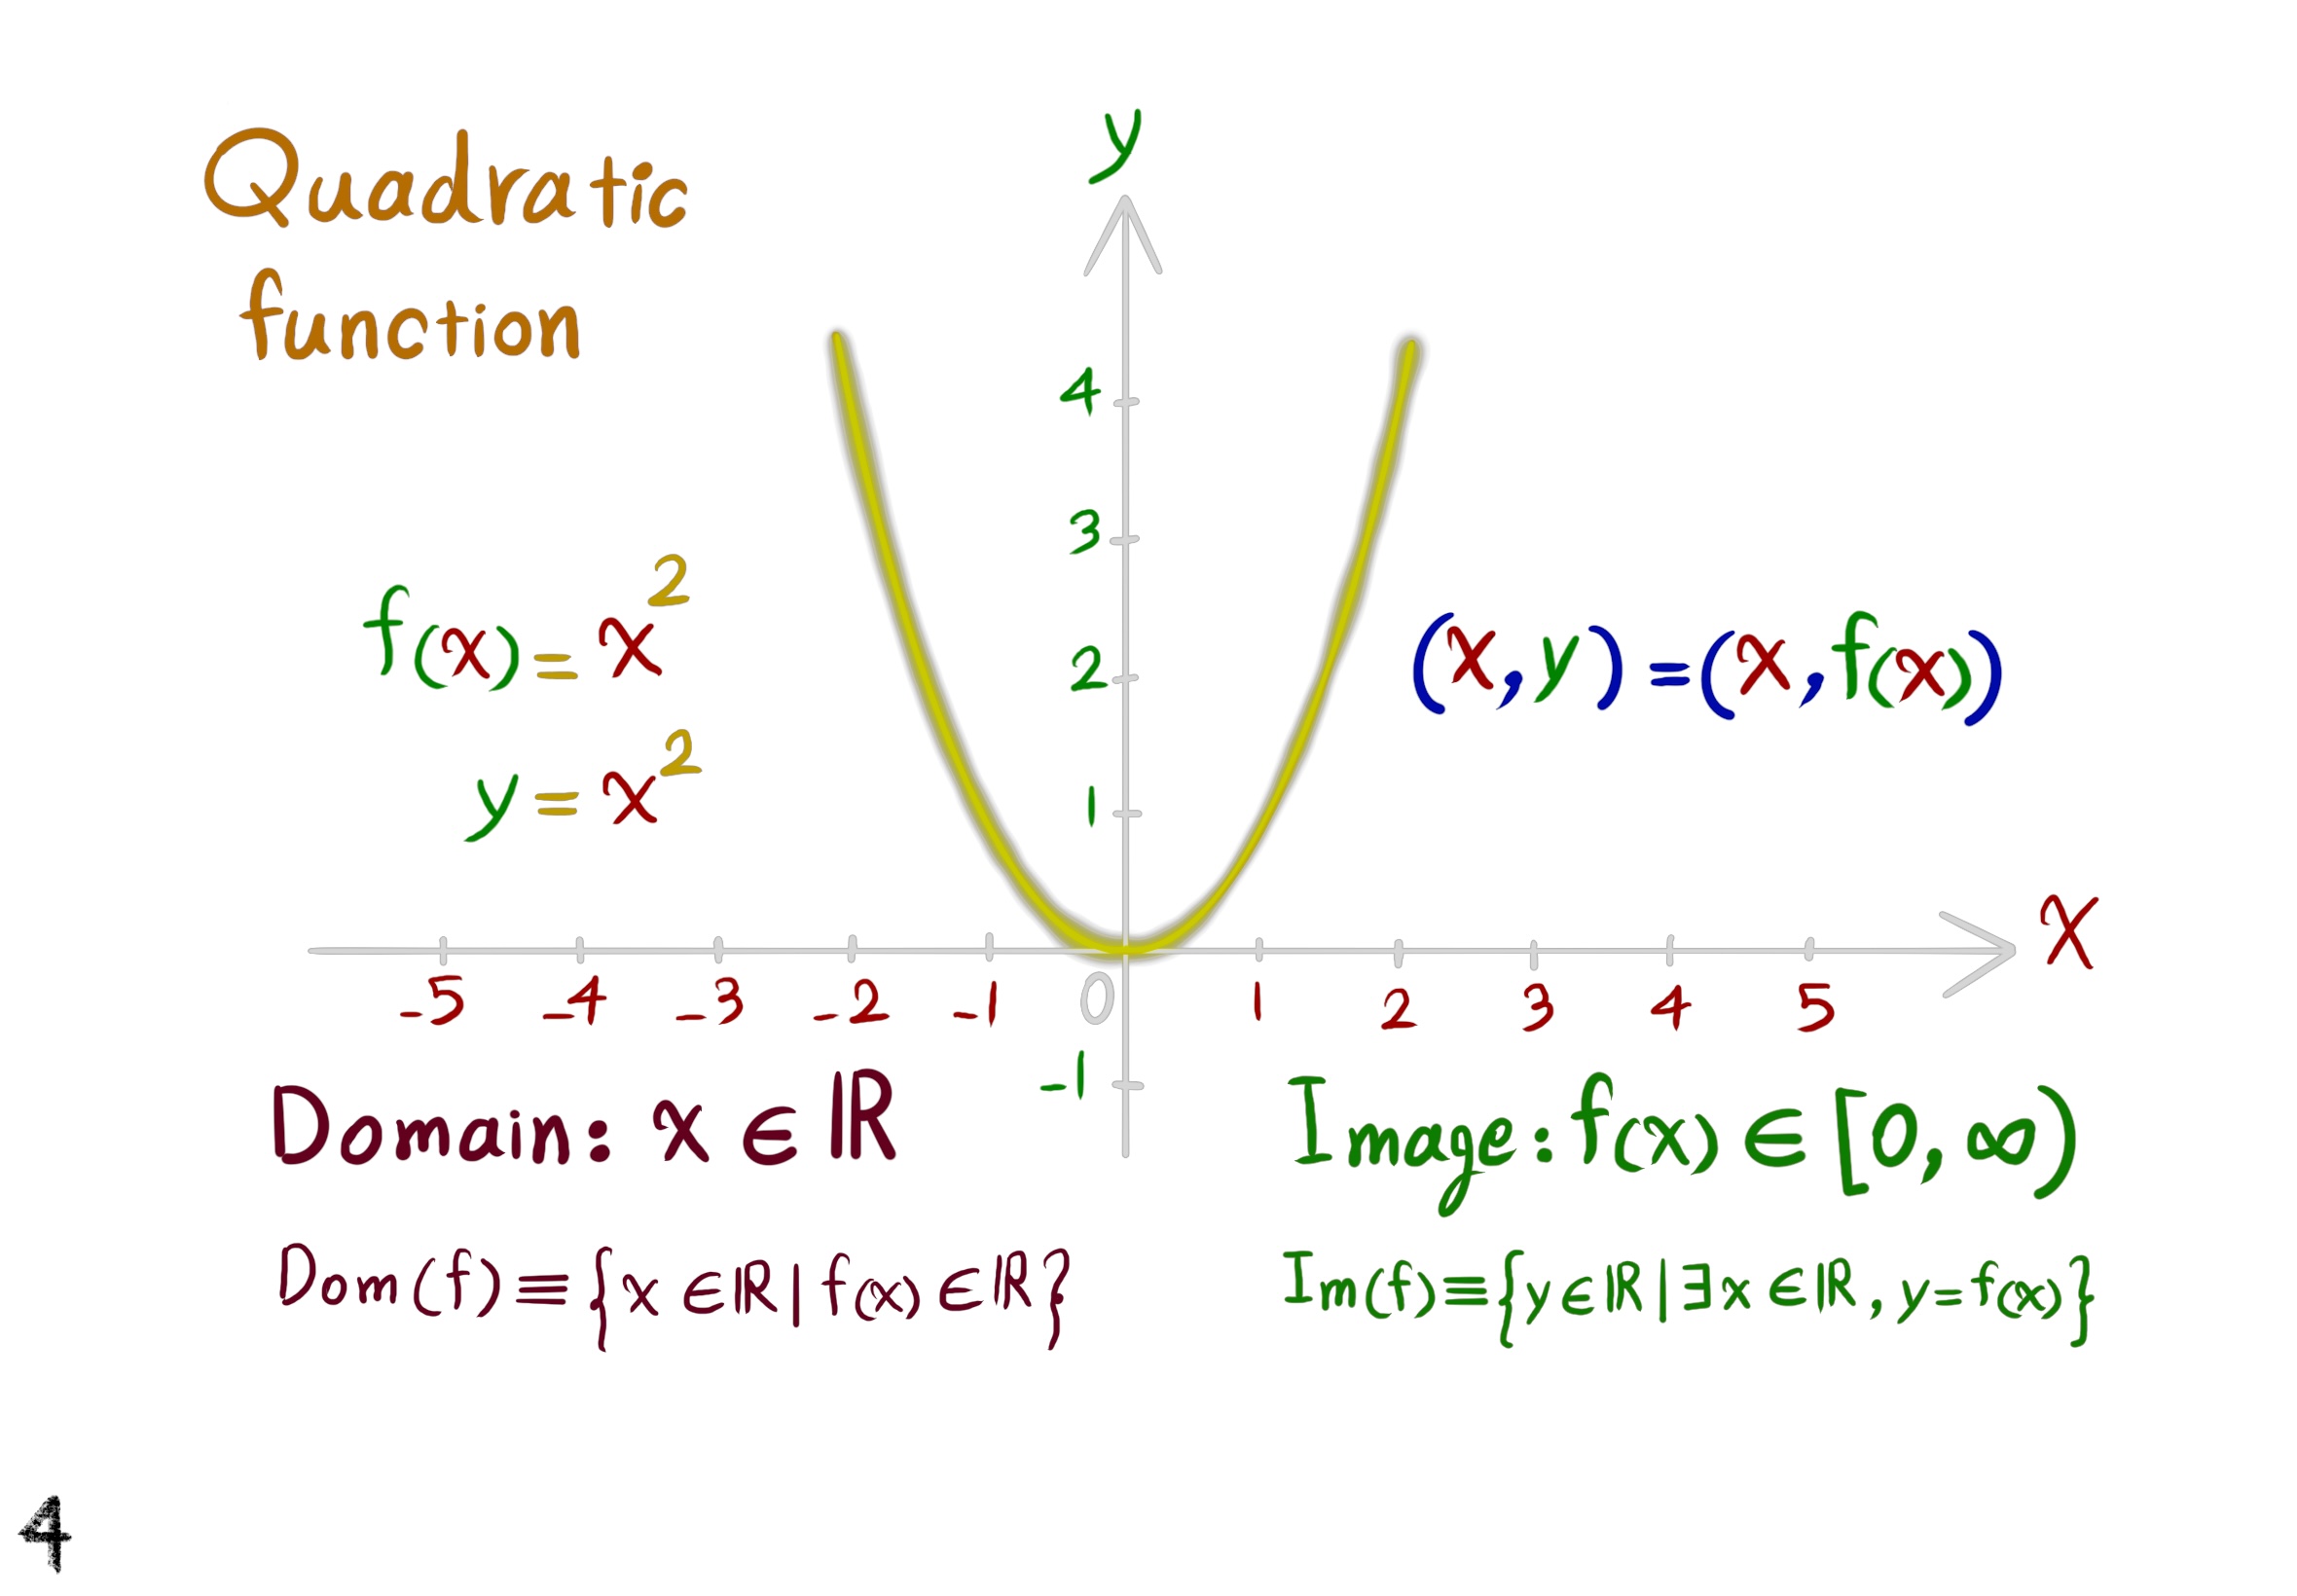 Quadratic
function
y
4
3
2
1
f(x) = x²
y = x²
(x,y) = (x, f(x))
x
-5 -4 -3 -2 -1 0 1 2 3 4 5
-1
Domain: x ∈ ℝ
Image: f(x) ∈ [0, ∞)
Dom(f) ≡ {x ∈ ℝ | f(x) ∈ ℝ}
Im(f) ≡ {y ∈ ℝ | ∃ x ∈ ℝ, y = f(x)}
4